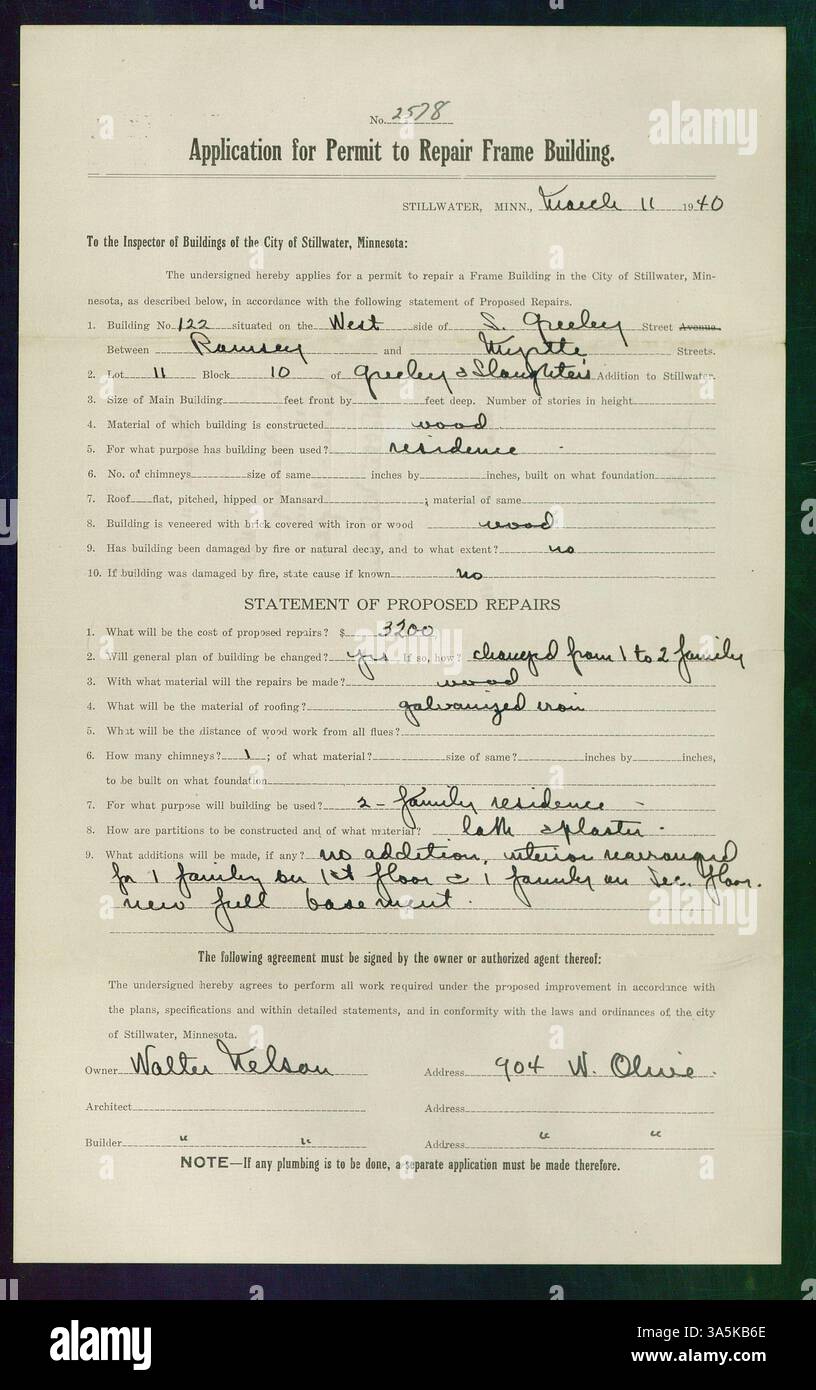 No. 2578
Application for Permit to Repair Frame Building.
STILLWATER, MINN., March 11 1940
To the Inspector of Buildings of the City of Stillwater, Minnesota:
The undersigned hereby applies for a permit to repair a Frame Building in the City of Stillwater, Min-
nesota, as described below, in accordance with the following statement of Proposed Repairs.
1. Building No. 122 situated on the West side of S. Greeley Street Avenue.
Between Ramsey and Myrtle Streets.
2. Lot 11 Block 10 of Greeley & Slaughter's Addition to Stillwater.
3. Size of Main Building feet front by feet deep. Number of stories in height
4. Material of which building is constructed wood
5. For what purpose has building been used? residence -
6. No. of chimneys size of same inches by inches, built on what foundation
7. Roof flat, pitched, hipped or Mansard ; material of same
8. Building is veneered with brick covered with iron or wood wood
9. Has building been damaged by fire or natural decay, and to what extent? no
10. If building was damaged by fire, state cause if known no
STATEMENT OF PROPOSED REPAIRS
1. What will be the cost of proposed repairs? $ 3200
2. Will general plan of building be changed? yes If so, how? changed from 1 to 2 family
3. With what material will the repairs be made? wood
4. What will be the material of roofing? galvanized iron
5. What will be the distance of wood work from all flues?
6. How many chimneys? 1 ; of what material? size of same? inches by inches,
to be built on what foundation
7. For what purpose will building be used? 2 - family residence -
8. How are partitions to be constructed and of what material? lath & plaster.
9. What additions will be made, if any? no addition, interior rearranged
for 1 family on 1st floor & 1 family on Sec. floor.
new full basement.
The following agreement must be signed by the owner or authorized agent thereof:
The undersigned hereby agrees to perform all work required under the proposed improvement in accordance with
the plans, specifications and within detailed statements, and in conformity with the laws and ordinances of the city
of Stillwater, Minnesota.
Owner Walter Nelson Address 904 W. Olive.
Architect Address
Builder " " Address " "
NOTE—If any plumbing is to be done, a separate application must be made therefore.
alamy
Image ID: 3A5KB6E
www.alamy.com